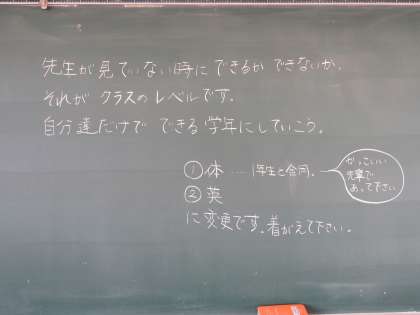 先生が見ていない時にできるか できないか。
それが クラスのレベルです。
自分達だけで できる学年にしていこう。
①体 …… 1年生と合同。
かっこいい
先輩で
あって下さい
②英
に変更です。着がえて下さい。